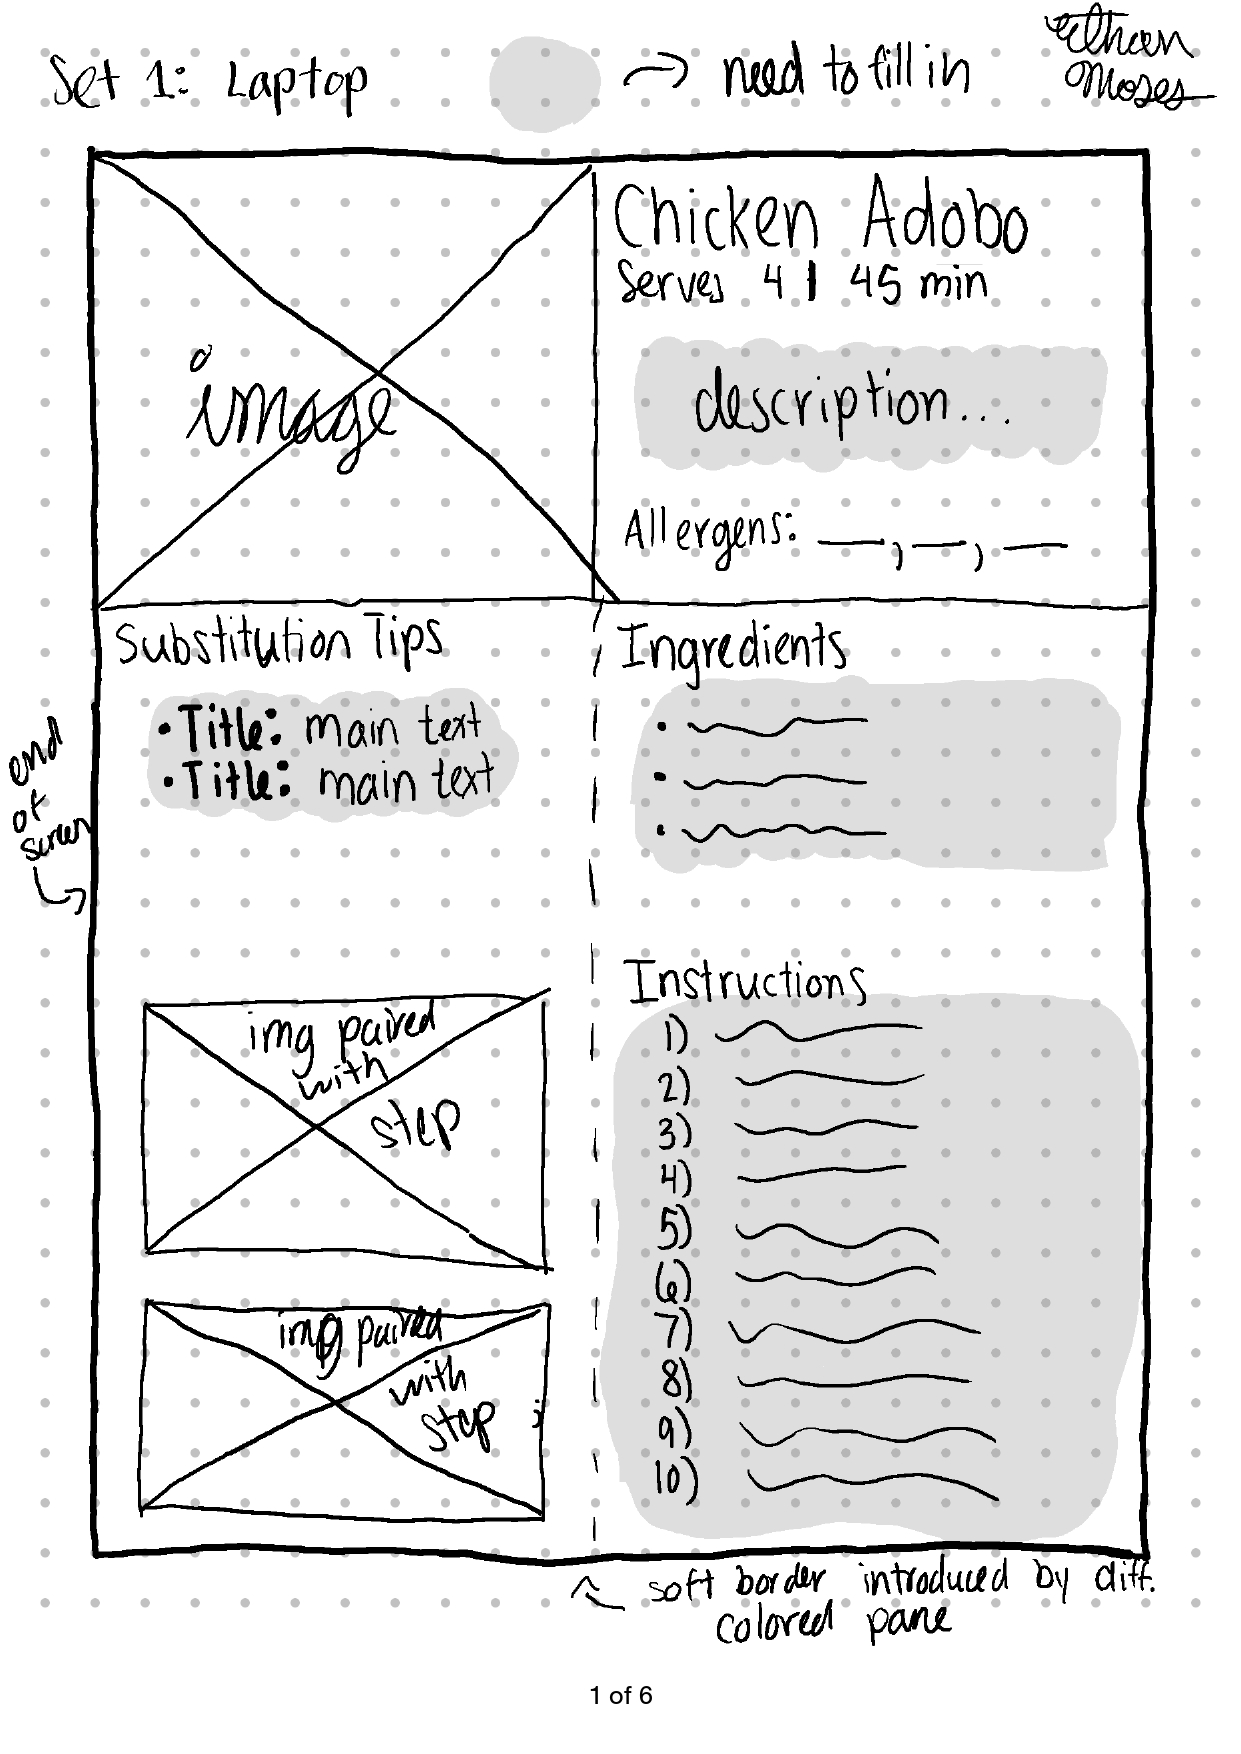 Set 1: Laptop
→ need to fill in
Ethan
Moses
image
Chicken Adobo
Serves 4 | 45 min
description...
Allergens: __, __, __
Substitution Tips
• Title: main text
• Title: main text
end
of
screen
Ingredients
img paired
with
step
img paired
with
step
Instructions
1)
2)
3)
4)
5)
6)
7)
8)
9)
10)
soft border introduced by diff.
colored pane
1 of 6